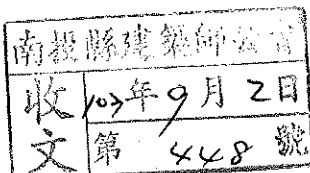 南投縣建築師公會
收文
103年9月2日
第 448 號